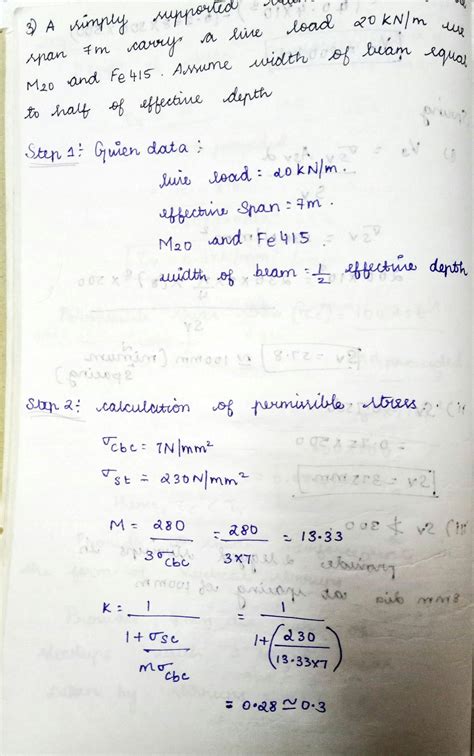 3) A simply supported
span 7m carry a live load 20 KN/m use
M20 and Fe 415. Assume width of beam equal
to half of effective depth
Step 1: Given data :
live load = 20 KN/m.
effective span = 7m.
M20 and Fe 415.
width of beam = 1/2 effective depth
Step 2: calculation of permissible stress.
σcbc = 7N/mm²
σst = 230N/mm²
M = 280/3σcbc = 280/3×7 = 13.33
K = 1/(1+σsc/mσcbc) = 1/(1+(230/13.33×7))
= 0.28 ≃ 0.3